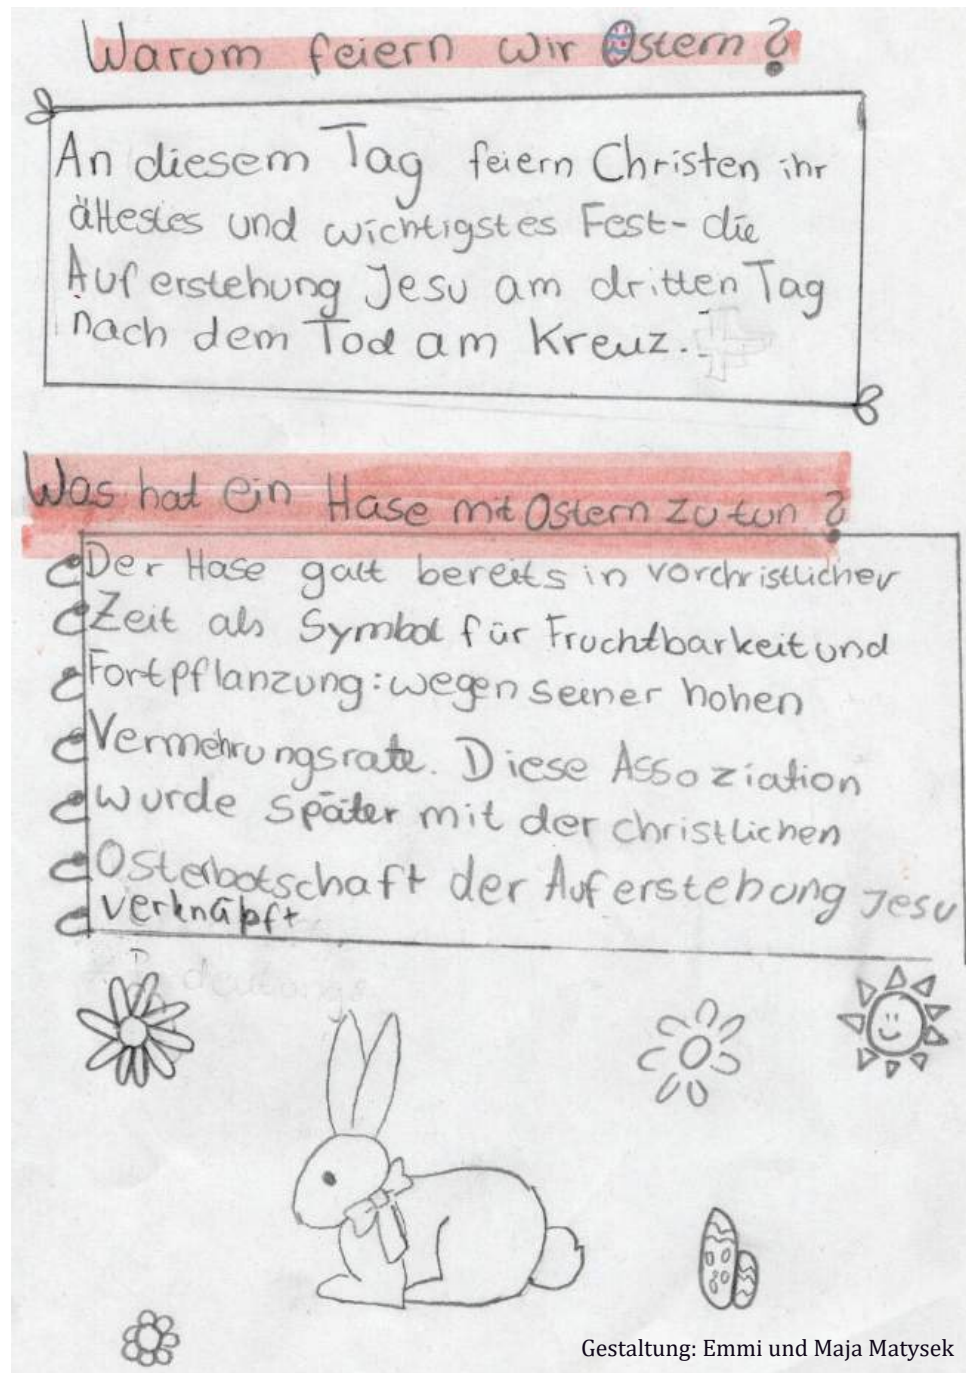 Warum feiern wir Ostern?
An diesem Tag feiern Christen ihr
ältestes und wichtigstes Fest- die
Auferstehung Jesu am dritten Tag
nach dem Tod am Kreuz.
Was hat ein Hase mit Ostern zu tun?
Der Hase galt bereits in vorchristlicher
Zeit als Symbol für Fruchtbarkeit und
Fortpflanzung: wegen seiner hohen
Vermehrungsrate. Diese Assoziation
wurde später mit der christlichen
Osterbotschaft der Auferstehung Jesu
verknüpft
Gestaltung: Emmi und Maja Matysek